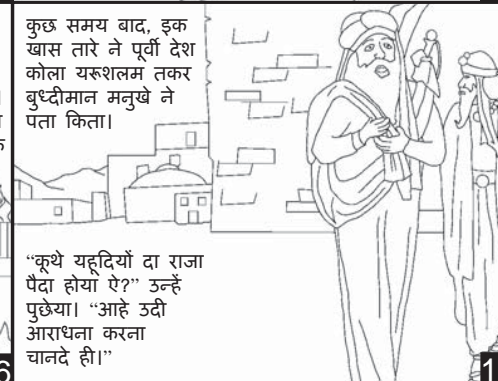 कुछ समय बाद, इक
खास तारे ने पूर्वी देश
कोला यरूशलम तकर
बुध्दीमान मनुखे ने
पता किता।
“कूथे यहूदियों दा राजा
पैदा होया ऐ?” उन्हें
पुछेया। “आहे उदी
आराधना करना
चानदे ही।”
6